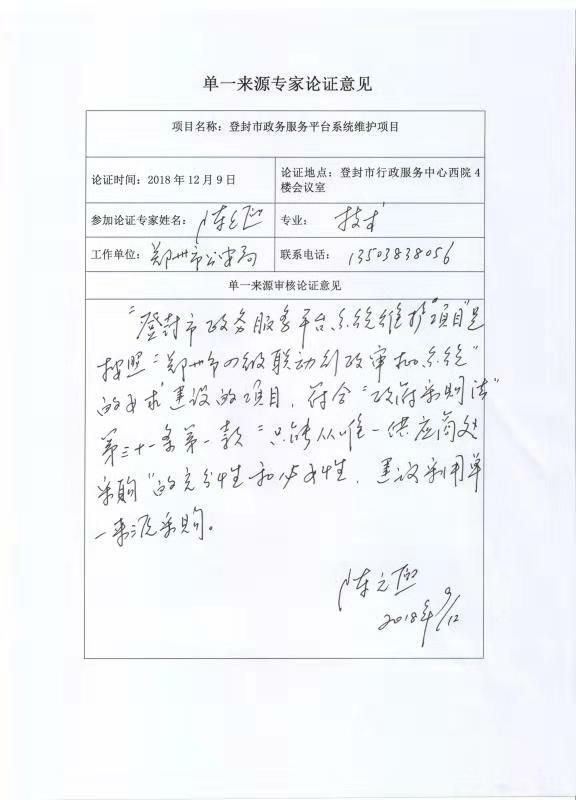 单一来源专家论证意见
项目名称：登封市政务服务平台系统维护项目
论证时间：2018 年 12 月 9 日
论证地点：登封市行政服务中心西院 4
楼会议室
参加论证专家姓名：陈
专业：技术
工作单位：郑州市公安局
联系电话：13503838056
单一来源审核论证意见
“登封市政务服务平台系统维护项目”是
按照“郑州市四级联动行政审批系统”
的要求建设的项目，符合“政府采购法”
第三十一条第一款“只能从唯一供应商处
采购”的充分性和必要性，建议采用单
一来源采购。
陈
2018年9/12